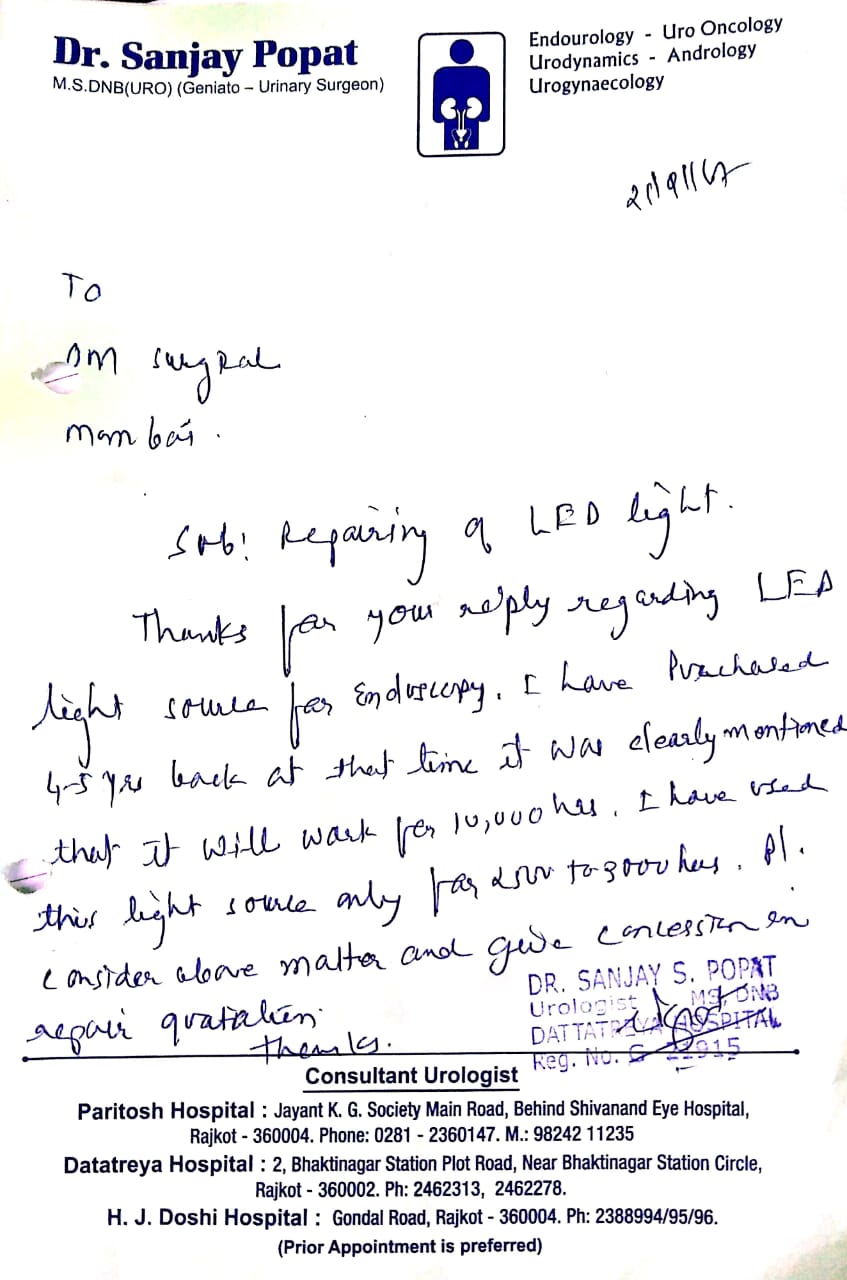 Dr. Sanjay Popat
M.S.DNB(URO) (Geniato – Urinary Surgeon)
Endourology - Uro Oncology
Urodynamics - Andrology
Urogynaecology
To
OM surgical
Mumbai.
Sub: Repairing of LED light.
Thanks for your reply regarding LED
light source for Endoscopy. I have Purchased
4-5 yrs back at that time it was clearly mentioned
that it will work for 10,000 hrs. I have used
this light source only for 2500 to 3000 hrs. Pl.
consider above matter and give concession in
repair quatation.
thanks.
DR. SANJAY S. POPAT
Urologist MS, DNB
DATTATREYA HOSPITAL
Reg. No. G
Consultant Urologist
Paritosh Hospital : Jayant K. G. Society Main Road, Behind Shivanand Eye Hospital,
Rajkot - 360004. Phone: 0281 - 2360147. M.: 98242 11235
Datatreya Hospital : 2, Bhaktinagar Station Plot Road, Near Bhaktinagar Station Circle,
Rajkot - 360002. Ph: 2462313, 2462278.
H. J. Doshi Hospital : Gondal Road, Rajkot - 360004. Ph: 2388994/95/96.
(Prior Appointment is preferred)